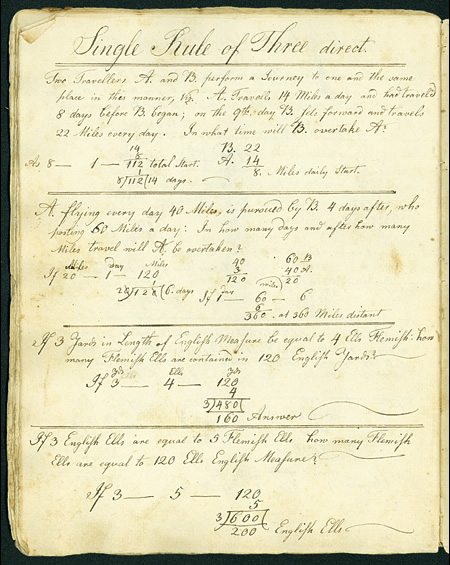 Single Rule of Three direct.
Two Travellers A. and B. perform a Journey to one and the same
place in this manner, viz. A. Travels 14 Miles a day and had traveled
8 days before B. began; on the 9th day B. sets forward and travels
22 Miles every day. In what time will B. overtake A?
14
8
As 8 — 1 — 112 total Start.
8)112(14 days.
B. 22
A. 14
8. Miles daily Start.
A. flying every day 40 Miles, is pursued by B. 4 days after, who
posting 60 Miles a day: In how many days and after how many
Miles travel will A. be overtaken?
Miles day
If 20 — 1 — 120
20)120( 6. days
40
3
120
60 B
40 A.
20
day miles
If 1 — 60 — 6
6
360. at 360 Miles distant
If 3 Yards in Length of English Measure be equal to 4 Ells Flemish: how
many Flemish Ells are contained in 120 English Yards?
Yds Ells Yds
If 3 — 4 — 120
4
3)480(
160 Answer
If 3 English Ells are equal to 5 Flemish Ells how many Flemish
Ells are equal to 120 Ells English Measure?
If 3 — 5 — 120
5
3)600(
200 English Ells